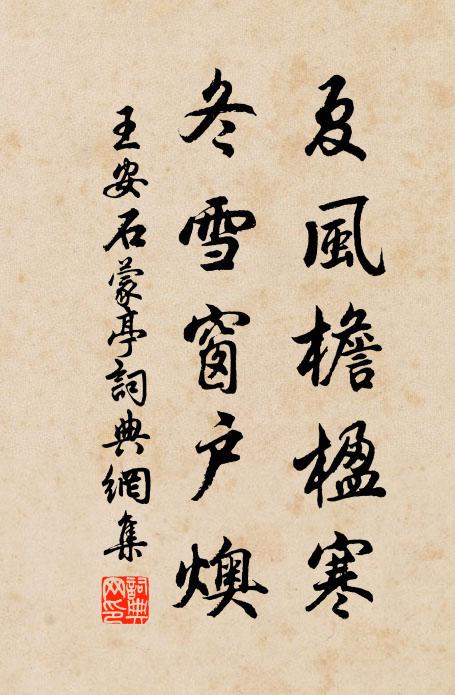 夏風檐楹寒
冬雪窗户燠
王安石蒙亭詞典網集
詞典
网印